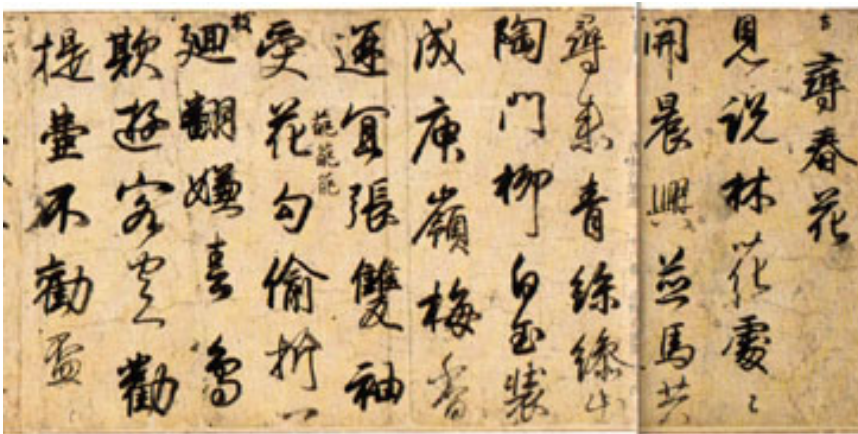 尋春花
見説林花處々
開晨興並馬共
尋来青絲繰出
陶門柳白玉装
成庾嶺梅香
逐冝張雙袖
受花勾偷折一
葩葩葩
枝
廻翻嫌春鳥
欺遊客空勸
提壺不勸盃